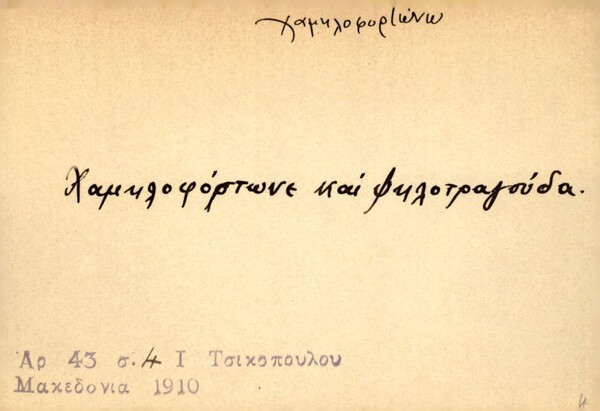 χαμηλοφορτώνω
Χαμηλοφόρτωνε καί ψηλοτραγούδα.
Αρ 43 σ. 4 Ι Τσικοπουλου
Μακεδονια 1910
4